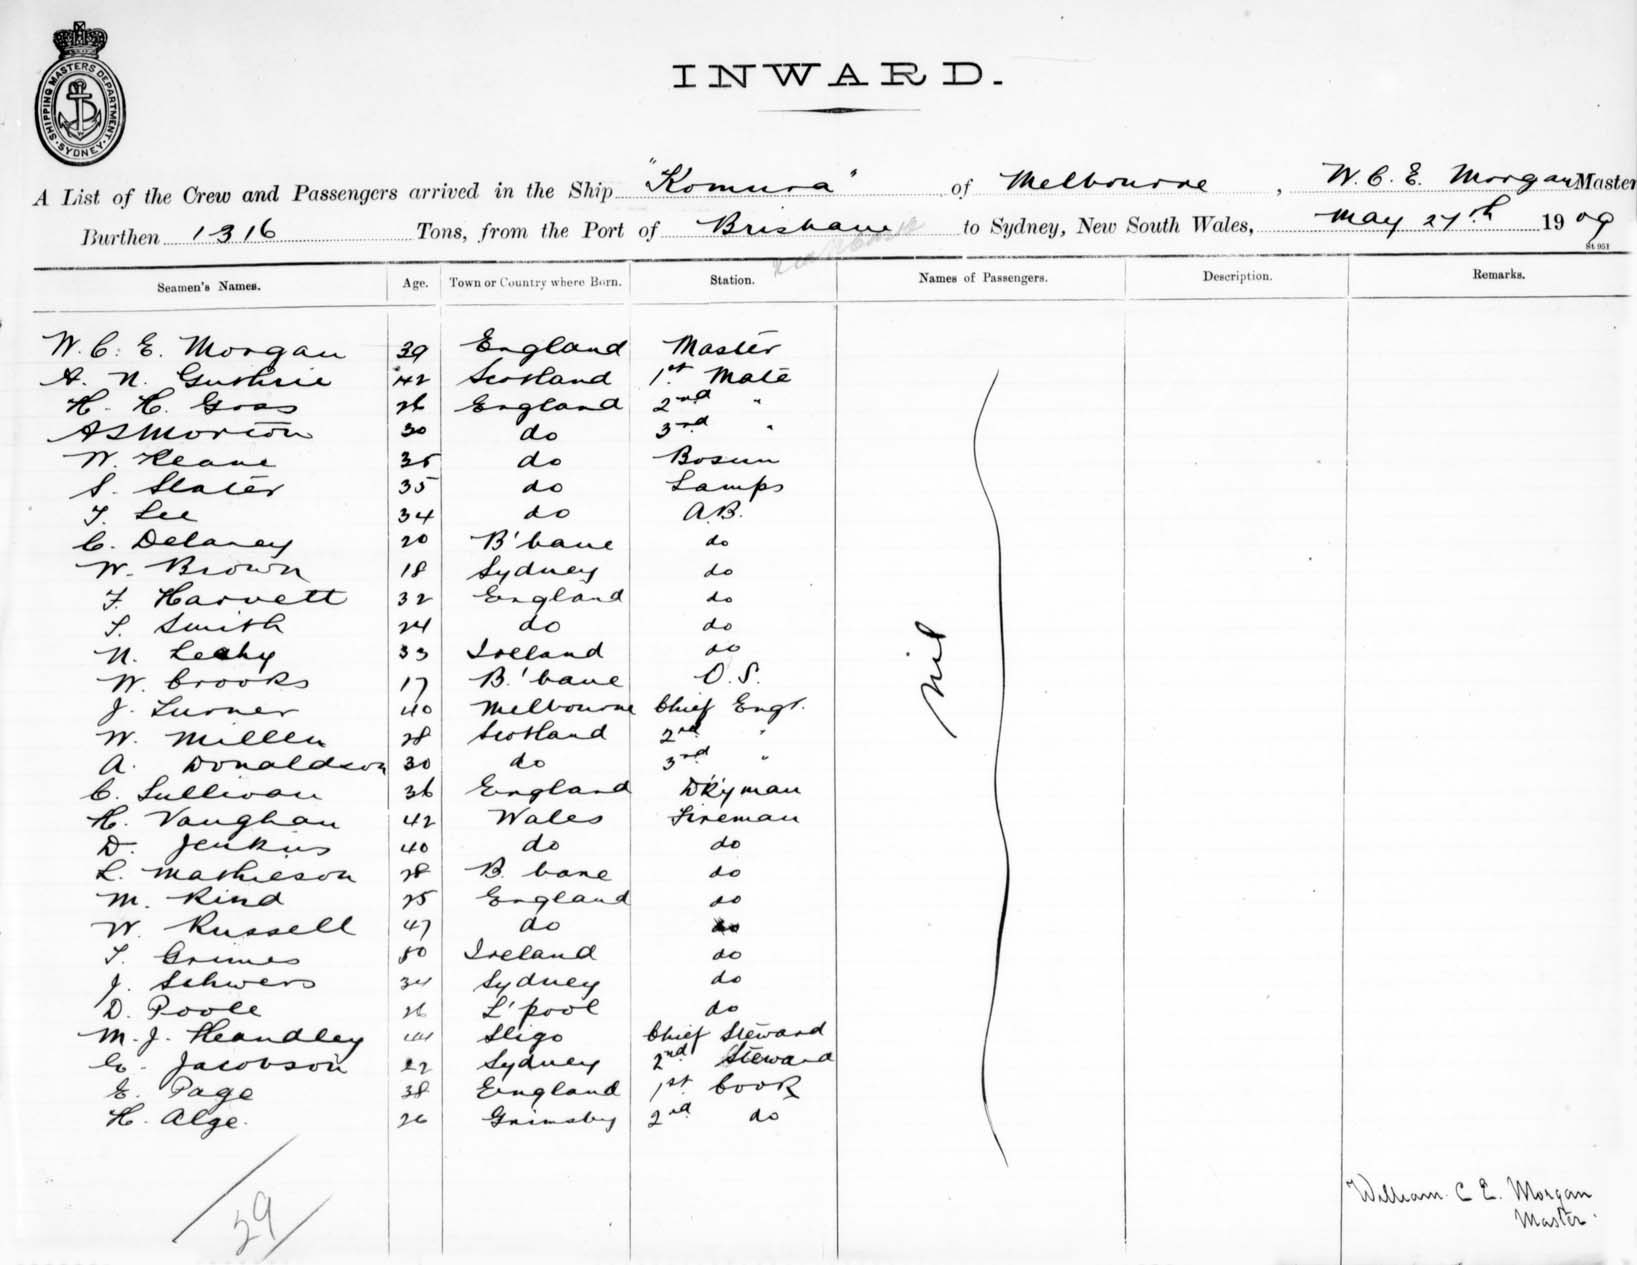 SHIPPING MASTERS DEPARTMENT. SYDNEY.
INWARD.
A List of the Crew and Passengers arrived in the Ship "Komura" of Melbourne, W. C. E. Morgan Master
Burthen 1316 Tons, from the Port of Brisbane to Sydney, New South Wales, May 27th 1909
St 951
Seamen's Names. Age. Town or Country where Born. Station. Names of Passengers. Description. Remarks.
W. C. E. Morgan 39 England Master
A. N. Guthrie 42 Scotland 1st Mate
H. H. Goss 26 England 2nd "
A S Morton 30 do 3rd "
W. Keane 35 do Bosun
S. Slater 35 do Lamps
T. Lee 34 do A.B.
C. Delaney 20 B'bane do
W. Brown 18 Sydney do
F. Harvett 32 England do
S. Smith 24 do do
N. Leahy 33 Ireland do
W. Crooks 17 B.'bane O.S.
J. Turner 40 Melbourne Chief Engr.
W. Millen 28 Scotland 2nd "
A. Donaldson 30 do 3rd "
C. Sullivan 36 England D'k'yman
H. Vaughan 42 Wales Fireman
D. Jenkins 40 do do
L. Mathieson 28 B. bane do
M. Kind 25 England do
W. Russell 47 do do
T. Grimes 50 Ireland do
J. Schwers 34 Sydney do
D. Poole 26 L'pool do
M. J. Heandley 44 Sligo Chief Steward
Jacobson 22 Sydney 2nd Steward
E. Page 38 England 1st Cook
H. Alge. 26 Grimsby 2nd do
nil
29
William C E. Morgan
Master.